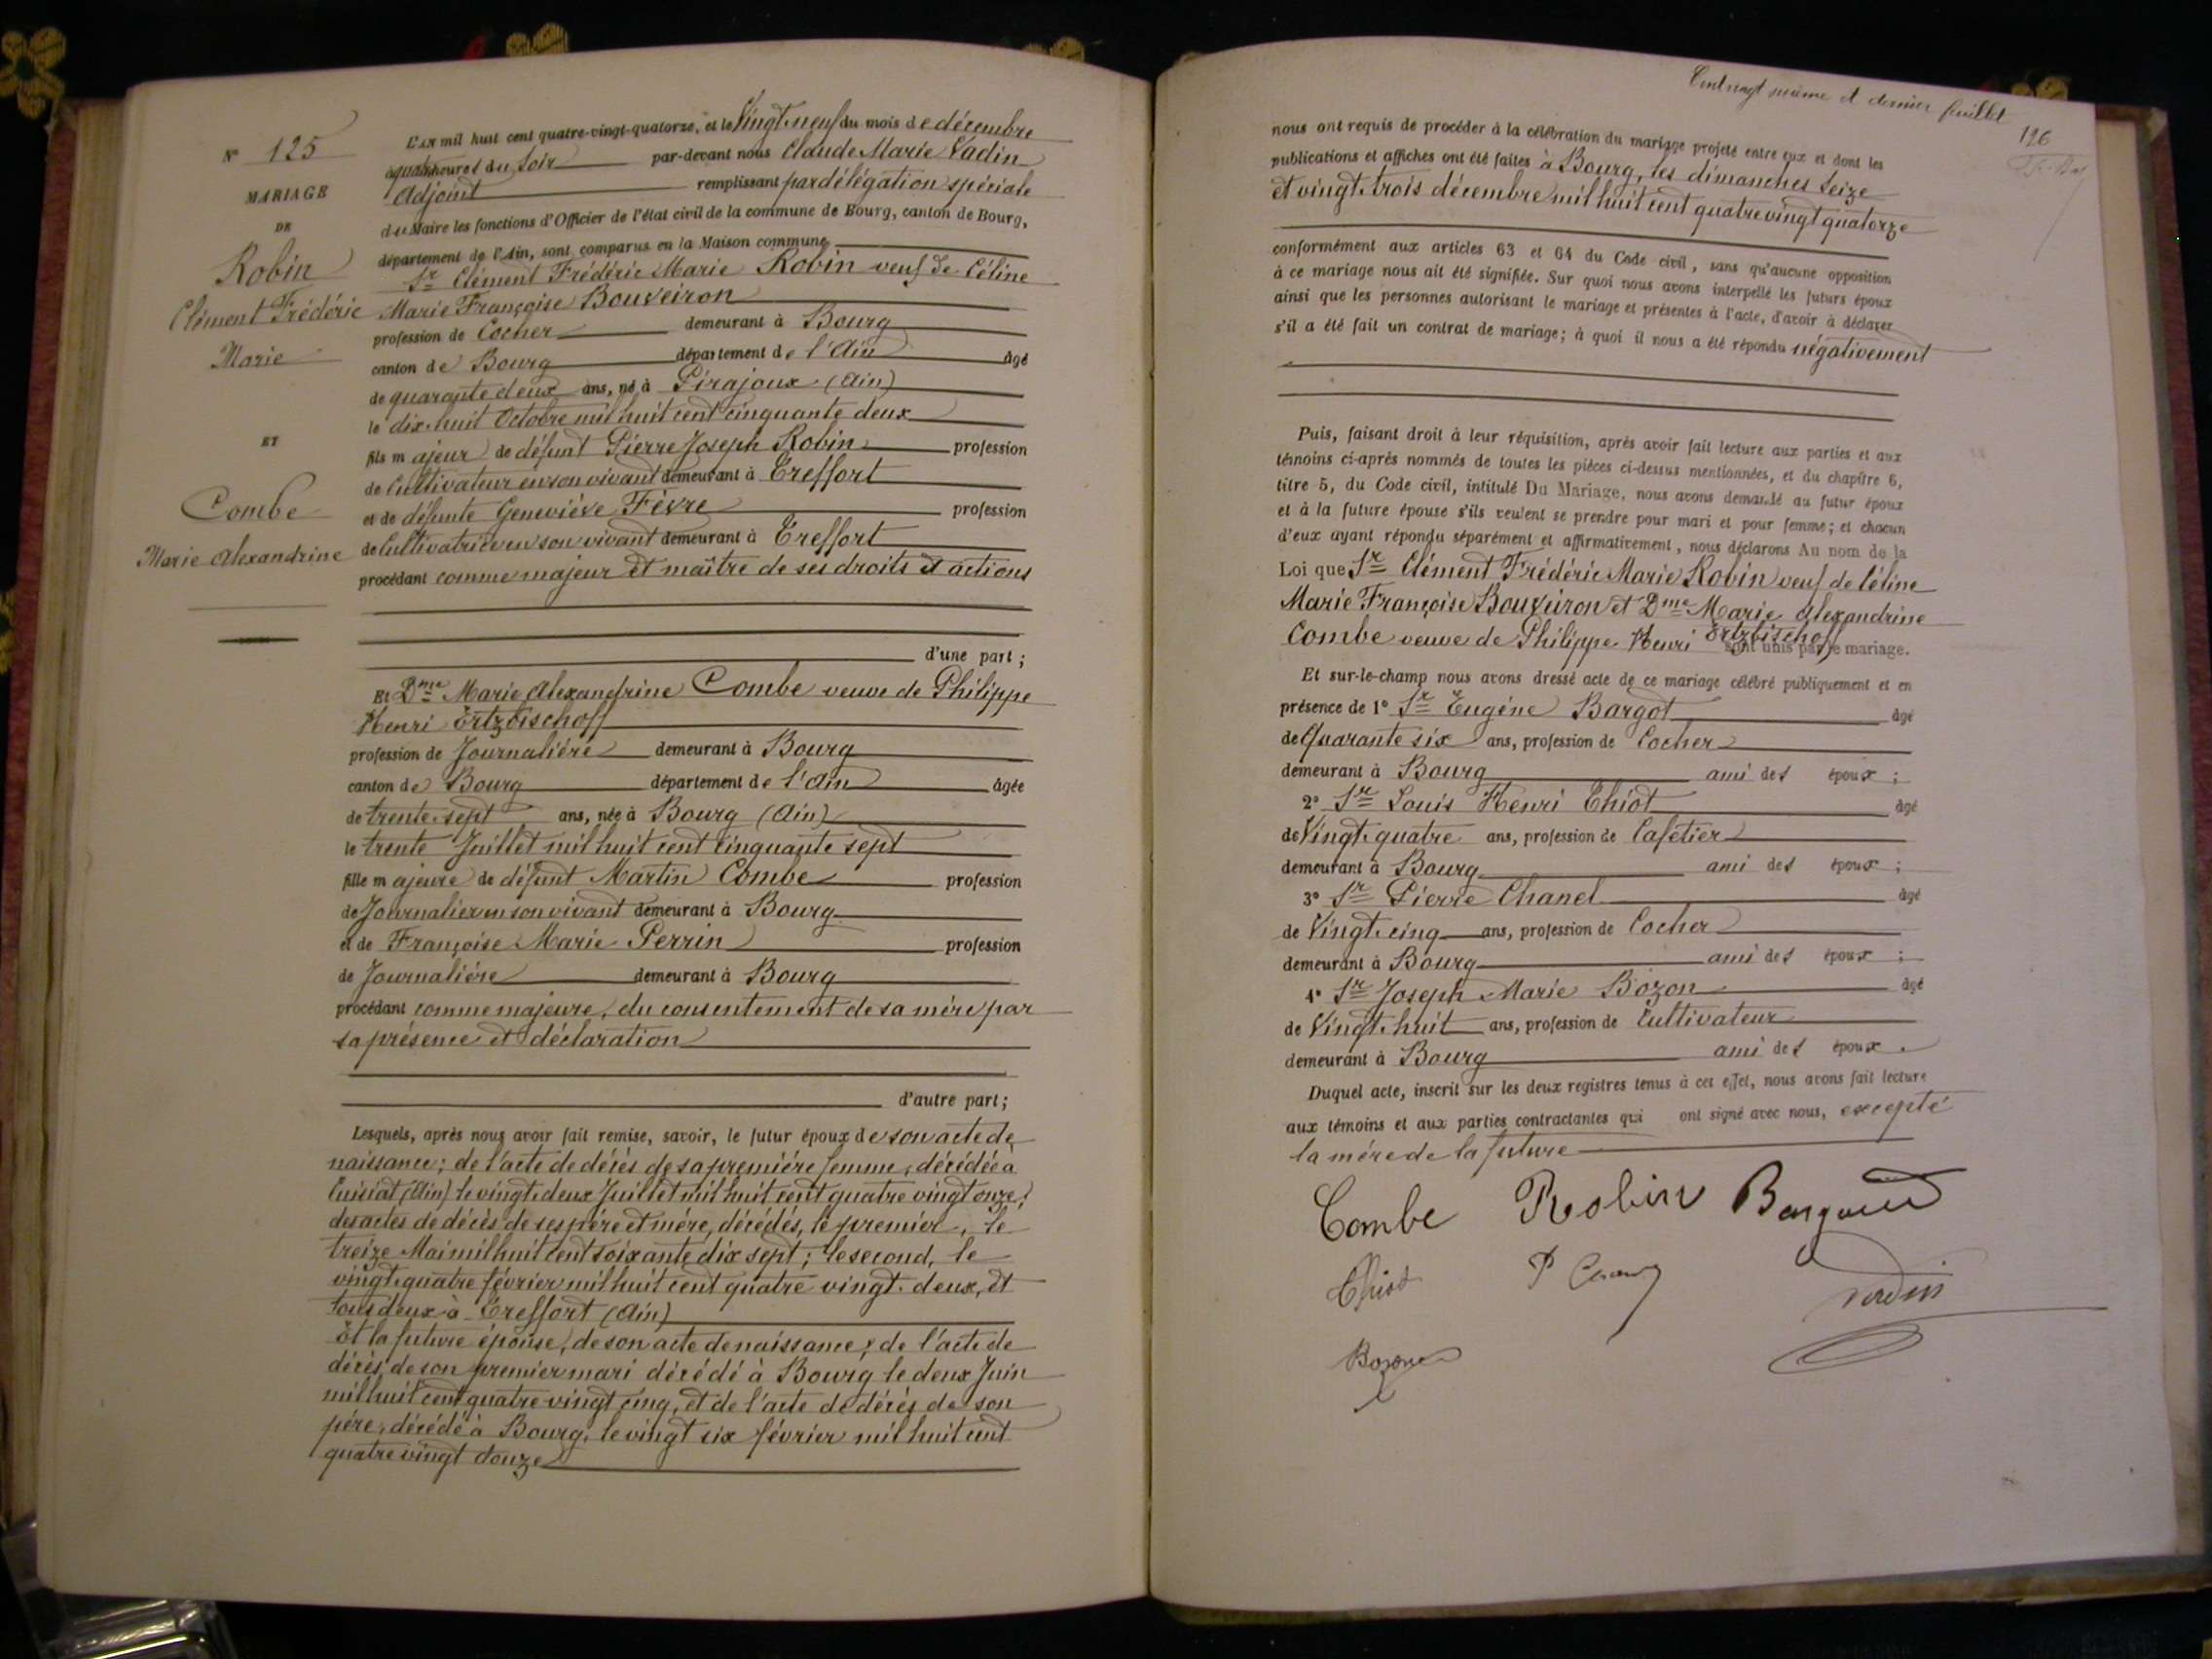 N° 125
MARIAGE
DE
Robin
Clément Frédéric
Marie
ET
Combe
Marie Alexandrine
L'AN mil huit cent quatre-vingt-quatorze, et le Vingt-neuf du mois de décembre
à quatre heures du Soir par-devant nous Claude Marie Vadin
Adjoint remplissant par délégation spéciale
du Maire les fonctions d'Officier de l'état civil de la commune de Bourg, canton de Bourg,
département de l'Ain, sont comparus en la Maison commune
Sr Clément Frédéric Marie Robin veuf de Céline
Marie Françoise Bouveiron
profession de Cocher demeurant à Bourg
canton de Bourg département de l'Ain âgé
de quarante deux ans, né à Pirajoux (Ain)
le dix-huit Octobre mil huit cent cinquante deux
fils majeur de défunt Pierre Joseph Robin profession
de Cultivateur en son vivant demeurant à Treffort
et de défunte Geneviève Fèvre profession
de Cultivatrice en son vivant demeurant à Treffort
procédant comme majeur et maître de ses droits et actions
d'une part ;
Et Dme Marie Alexandrine Combe veuve de Philippe
Henri Ertzbischoff
profession de Journalière demeurant à Bourg
canton de Bourg département de l'Ain âgée
de trente-sept ans, née à Bourg (Ain)
le trente Juillet mil huit cent cinquante sept
fille majeure de défunt Martin Combe profession
de Journalier en son vivant demeurant à Bourg
et de Françoise Marie Perrin profession
de Journalière demeurant à Bourg
procédant comme majeure, du consentement de sa mère par
sa présence et déclaration
d'autre part ;
Lesquels, après nous avoir fait remise, savoir, le futur époux de son acte de
naissance ; de l'acte de décès de sa première femme, décédée à
Cuisiat (Ain) le vingt-deux Juillet mil huit cent quatre vingt onze ;
des actes de décès de ses père et mère, décédés, le premier, le
treize Mai mil huit cent soixante dix sept ; le second, le
vingt-quatre février mil huit cent quatre vingt-deux, et
tous deux à Treffort (Ain)
Et la future épouse, de son acte de naissance ; de l'acte de
décès de son premier mari décédé à Bourg le deux Juin
mil huit cent quatre vingt cinq, et de l'acte de décès de son
père, décédé à Bourg, le vingt six février mil huit cent
quatre vingt douze
Cent vingt sixième et dernier feuillet
126
nous ont requis de procéder à la célébration du mariage projeté entre eux et dont les
publications et affiches ont été faites à Bourg, les dimanches Seize
et vingt-trois décembre mil huit cent quatre vingt quatorze
conformément aux articles 63 et 64 du Code civil, sans qu'aucune opposition
à ce mariage nous ait été signifiée. Sur quoi nous avons interpellé les futurs époux
ainsi que les personnes autorisant le mariage et présentes à l'acte, d'avoir à déclarer
s'il a été fait un contrat de mariage ; à quoi il nous a été répondu négativement
Puis, faisant droit à leur réquisition, après avoir fait lecture aux parties et aux
témoins ci-après nommés de toutes les pièces ci-dessus mentionnées, et du chapitre 6,
titre 5, du Code civil, intitulé Du Mariage, nous avons demandé au futur époux
et à la future épouse s'ils veulent se prendre pour mari et pour femme ; et chacun
d'eux ayant répondu séparément et affirmativement, nous déclarons Au nom de la
Loi que Sr Clément Frédéric Marie Robin veuf de Céline
Marie Françoise Bouveiron et Dme Marie Alexandrine
Combe veuve de Philippe Henri Ertzbischoff sont unis par le mariage.
Et sur-le-champ nous avons dressé acte de ce mariage célébré publiquement et en
présence de 1° Sr Eugène Bargot âgé
de Quarante six ans, profession de Cocher
demeurant à Bourg ami des époux ;
2° Sr Louis Henri Thiot âgé
de Vingt-quatre ans, profession de Cafetier
demeurant à Bourg ami des époux ;
3° Sr Pierre Chanel âgé
de Vingt-cinq ans, profession de Cocher
demeurant à Bourg ami des époux ;
4° Sr Joseph Marie Bozon âgé
de Vingt-huit ans, profession de Cultivateur
demeurant à Bourg ami des époux.
Duquel acte, inscrit sur les deux registres tenus à cet effet, nous avons fait lecture
aux témoins et aux parties contractantes qui ont signé avec nous, excepté
la mère de la future
Combe Robin
Thiot
Vadin
Bozon